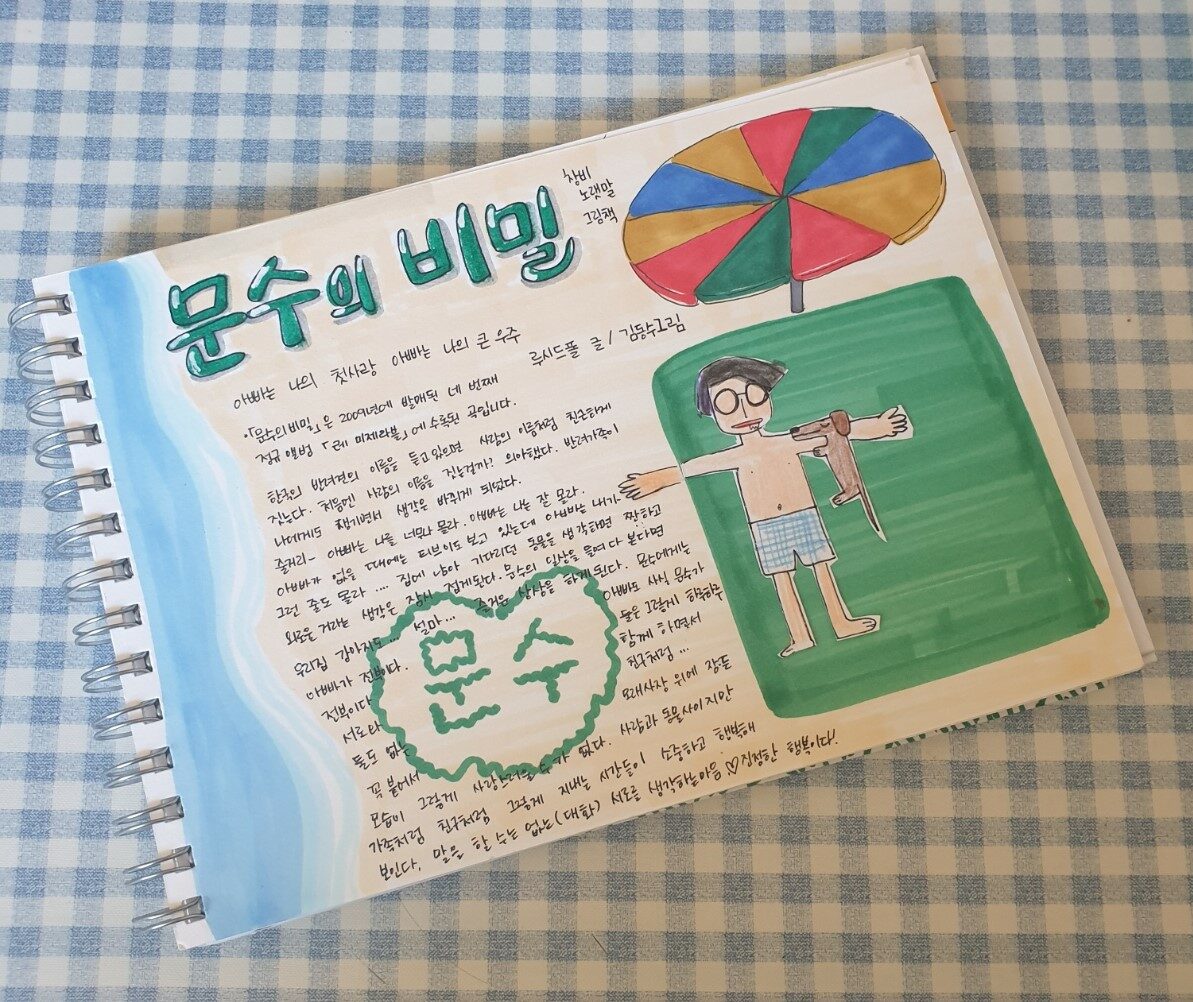 문수의 비밀
창비
노랫말
그림책
아빠는 나의 첫사랑 아빠는 나의 큰 우주
루시드폴 글 / 김동수 그림
•「문수의 비밀」은 2009년에 발매된 네 번째
정규 앨범 「레 미제라블」에 수록된 곡입니다.
한국의 반려견의 이름을 듣고 있으면 사람의 이름처럼 친근하게
짓는다. 처음엔 사람의 이름을 짓는걸까? 의아했다. 반려가족이
나에게도 생기면서 생각은 바뀌게 되었다.
줄거리- 아빠는 나를 너무나 몰라. 아빠는 나는 잘 몰라.
아빠가 없을 때에는 티브이도 보고 있는데 아빠는 내가
그런 줄도 몰라 .... 집에 남아 기다리던 동물을 생각하면 짠하고
외로울거라는 생각은 잠시 접게된다. 문수의 일상을 들여다 본다면
우리집 강아지도... 설마... 즐거운 상상을 하게 된다. 문수에게는
아빠가 전부이다. 아빠도 사실 문수가
전부이다 둘은 그렇게 하루하루
서로 함께 하면서
둘도 없는 친구처럼 ...
꼭 붙어서 모래사장 위에 잠든
모습이 그렇게 사랑스러울 수가 없다. 사람과 동물사이지만
가족처럼 친구처럼 그렇게 지내는 시간들이 소중하고 행복해
보인다, 말을 할 수는 없는(대화) 서로를 생각하는마음 ♡ 진정한 행복이다!
문수